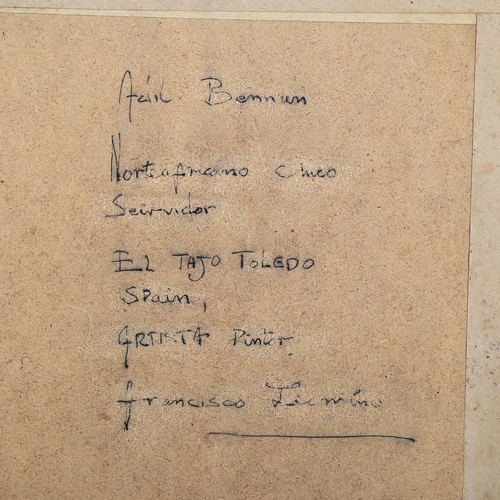 Adil Bennun
Norteafricano Chico
Seirvidor
EL TAJO TOLEDO
Spain,
ARTISTA Pintor
francisco